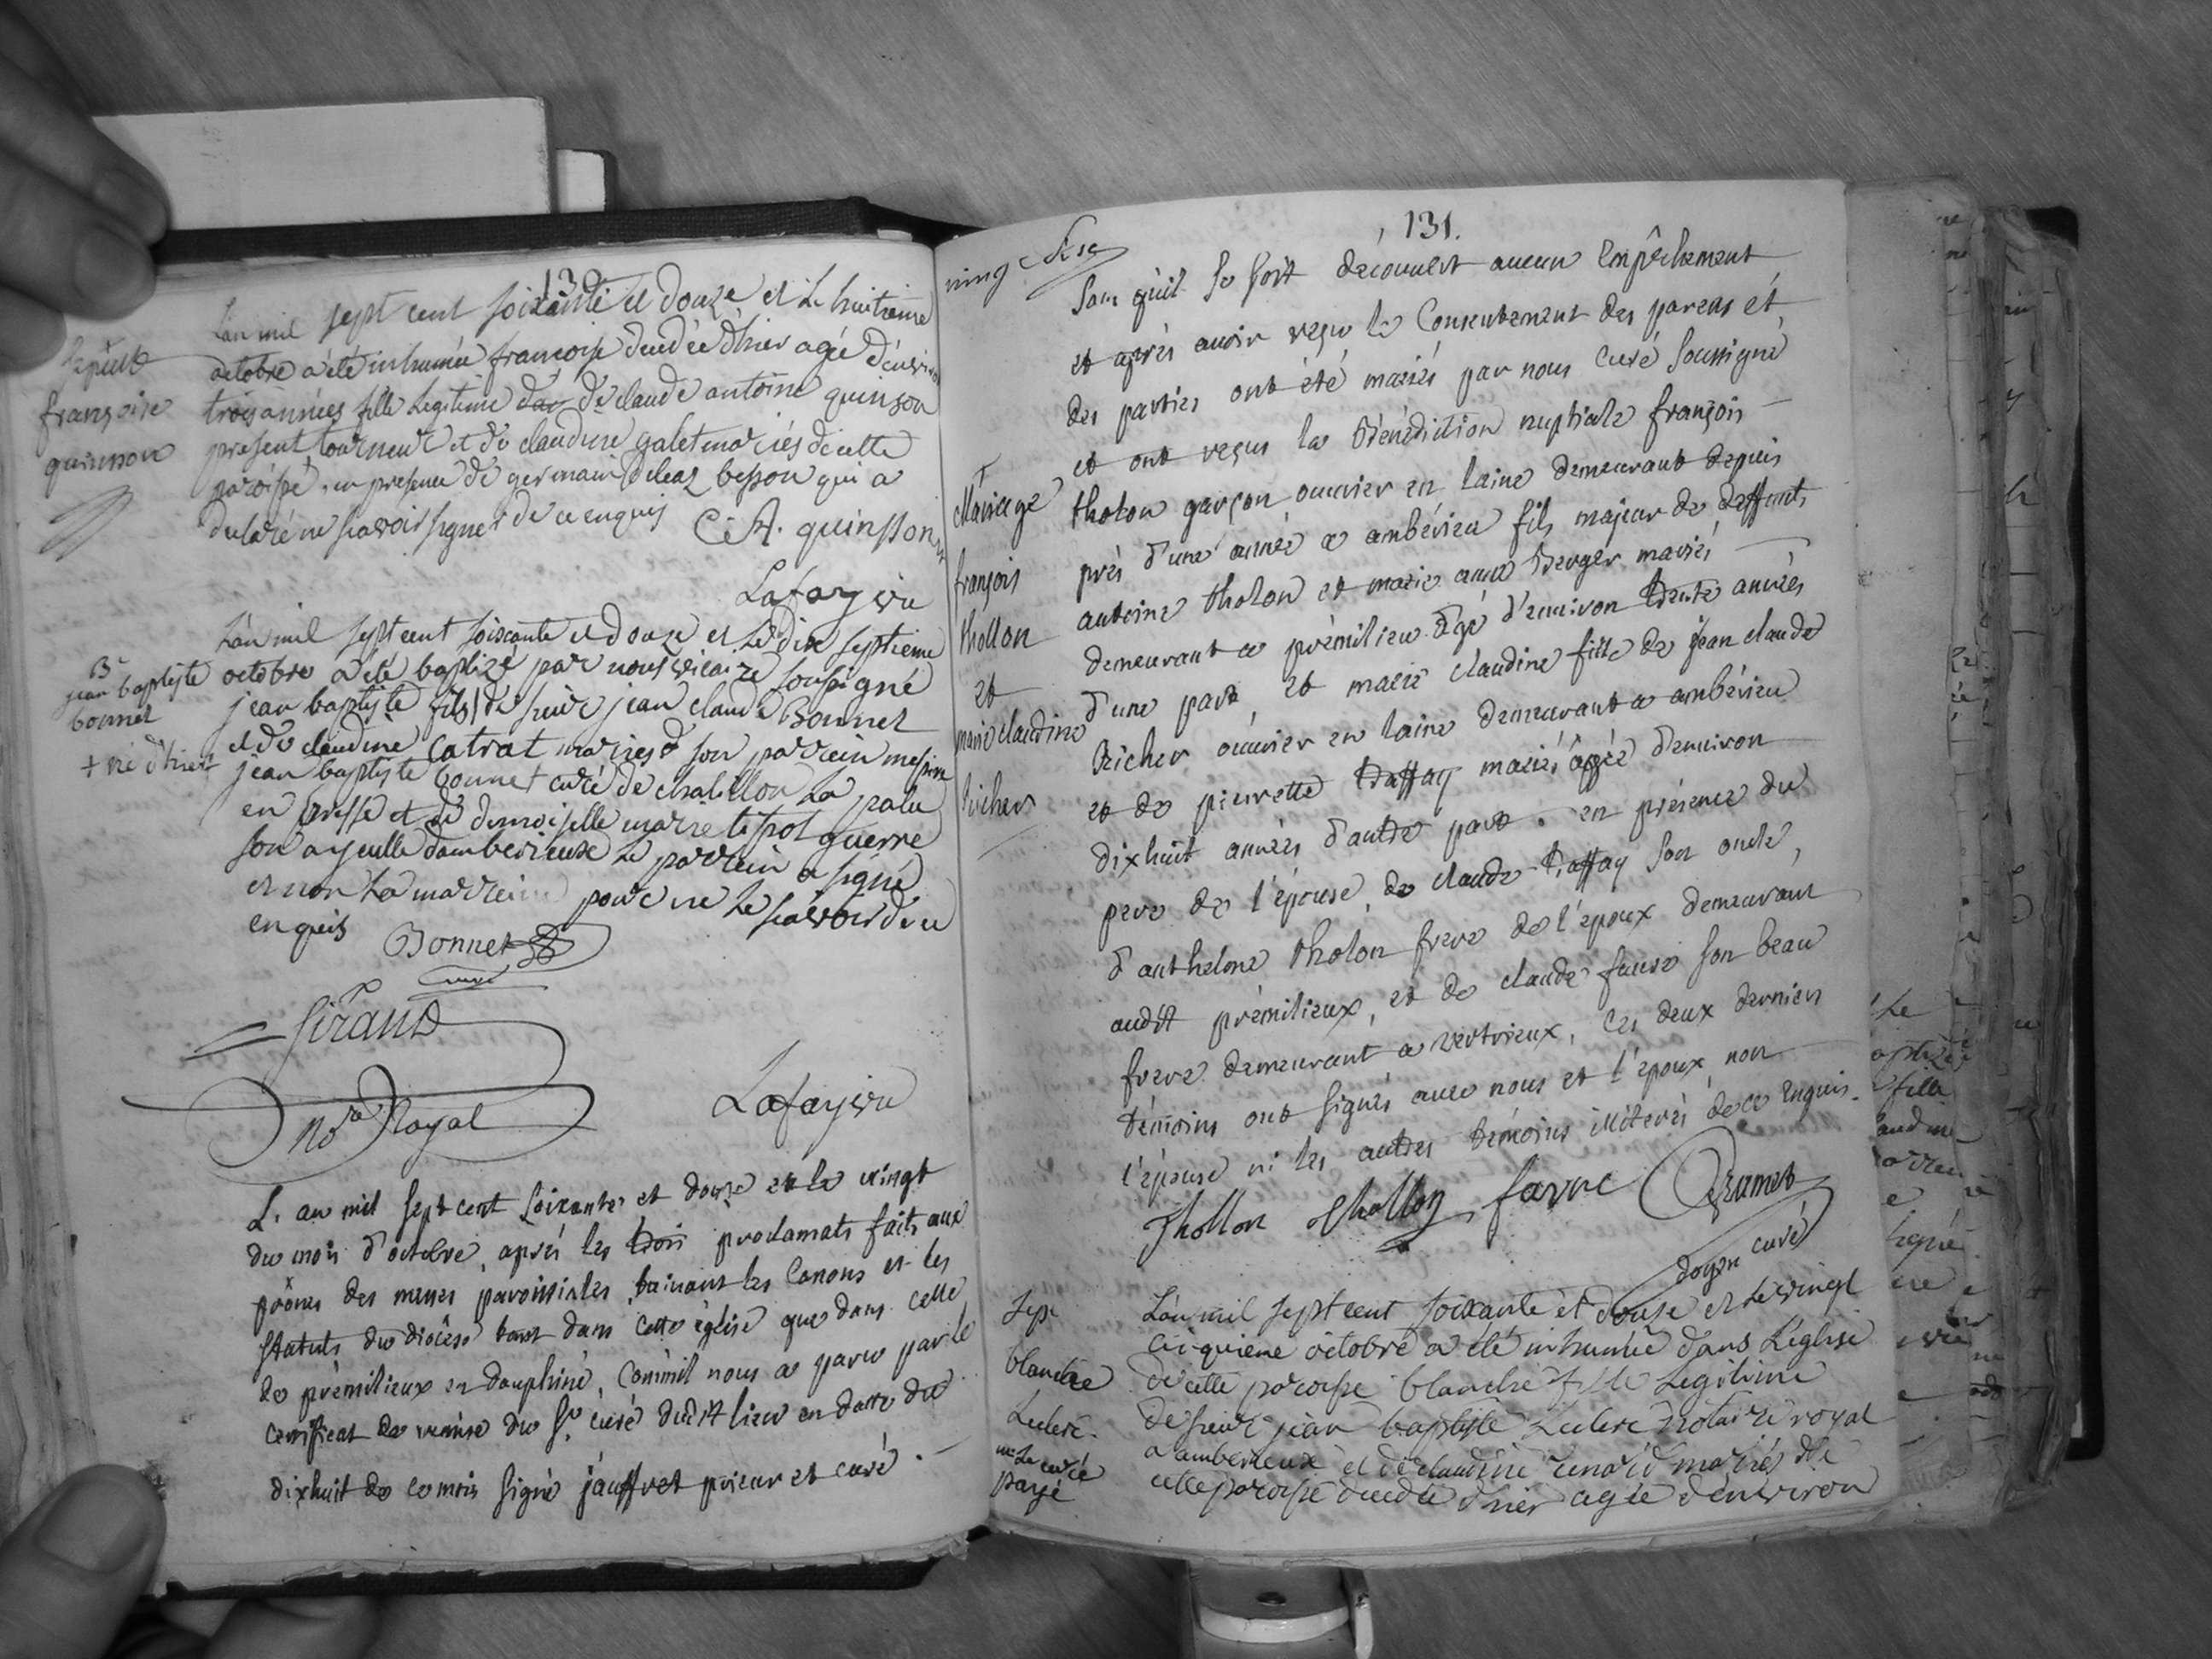 130
L'an mil sept cent soixante et douze et le huitieme
octobre a été inhumée françoise decedée d'hier agée d'environ
trois années fille legitime de claude antoine quinson
present tourneur et de claudine galet mariés de cette
paroisse, en presence de germain beson qui a
declaré ne scavoir signer de ce enquis C. A. quinsson
Lafay vic
sepult
françoise
quinson
L'an mil sept cent soixante et douze et Le dix septieme
octobre a été baptizé par nous vicaire soussigné
jean baptiste fils de sieur jean claude Bonnet
et de claudine Catrat mariés son parrein messire
jean baptiste bonnet curé de chatillon La palu
en bresse et de demoiselle marie guerre
son ayeulle d'amberieux Le parrein a signé
et non La marreine pour ne Le scavoir de ce
enquis Bonnet
curé
B
jean baptiste
bonnet
+ né d'hier
Sirand
nore Royal
Lafay vic
L'an mil sept cent soixante et douze et le vingt
du mois d'octobre, après les trois proclamats faits aux
prônes des messes paroissiales suivant les Canons et les
statuts du diocèse tant dans cette église que dans celle
de prémilieux en dauphiné, comm'il nous a paru par le
certificat de remise du Sr. curé dudit lieu en datte du
dixhuit de ce mois signé jauffret prieur et curé.
131.
sans qu'il se soit découvert aucun empêchement
et après avoir reçu le Consentement des parens et
des parties ont été mariés par nous curé soussigné
et ont reçus la bénédiction nuptiale françois
tholon garçon ouvrier en laine demeurant depuis
près d'une année a ambérieu fils majeur de deffunts
antoine tholon et marie anne berger mariés
demeurant a prémilieu âgé d'environ trente années
d'une part, et marie claudine fille de jean claude
Richer ouvrier en laine demeurant a ambérieu
et de pierrette traffay mariés âgée d'environ
dixhuit années d'autre part. en présence du
pere de l'épouse, de claude traffay son oncle,
d'anthelme tholon frere de l'époux demeurant
audit prémilieux, et de claude favre son beau
frere demeurant a vertrieux, ces deux derniers
témoins ont signés avec nous et l'époux non
l'épouse ni les autres témoins illiterés de ce enquis.
Thollon thollon favre Grumet
doyen curé
Mariage
françois
thollon
et
marie claudine
Richer
L'an mil sept cent soixante et douse et Le vingt
cinquieme octobre a été inhumée dans L'eglise
de cette paroisse blanche fille Legitime
de sieur jean baptiste Leclerc notaire royal
a amberieux et de claudine renard mariés de
cette paroisse decedée d'hier agée d'environ
Sep.
blanche
Leclerc.
mr Le curé
payé